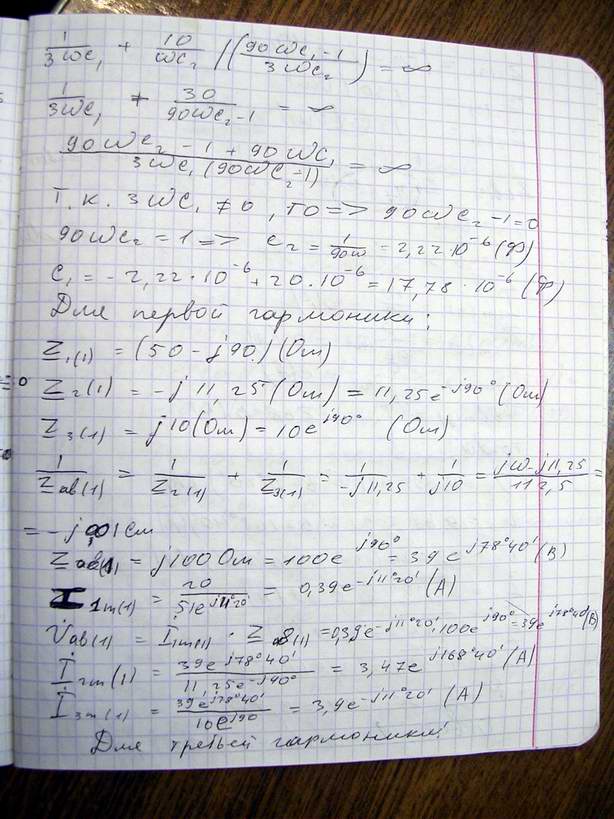 1/(3ωC₁) + 10/(ωC₂) / ((90ωC₂-1)/(3ωC₂)) = ∞
1/(3ωC₁) + 30/(90ωC₂-1) = ∞
(90ωC₂ - 1 + 90ωC₁)/(3ωC₁(90ωC₂-1)) = ∞
Т.к. 3ωC₁ ≠ 0, то => 90ωC₂-1=0
90ωC₂ = 1 => C₂ = 1/(90ω) = 2,22·10⁻⁶ (Ф)
C₁ = -2,22·10⁻⁶ + 20·10⁻⁶ = 17,78·10⁻⁶ (Ф)
Для первой гармоники:
Z₁₍₁₎ = (50 - j90) (Ом)
Z₂₍₁₎ = -j11,25 (Ом) = 11,25e^(-j90°) (Ом)
Z₃₍₁₎ = j10 (Ом) = 10e^(j90°) (Ом)
1/Zab₍₁₎ = 1/Z₂₍₁₎ + 1/Z₃₍₁₎ = 1/(-j11,25) + 1/(j10) = (j10-j11,25)/(112,5) =
= -j0,01 См
Zab₍₁₎ = j100 Ом = 100e^(j90°) = 39e^(j78°40') (В)
I₁m(1) = 20/(51e^(j11°20')) = 0,39e^(-j11°20') (А)
U̇ab(1) = İ₁m(1) · Zab(1) = 0,39e^(-j11°20')·100e^(j90°) = 39e^(j78°40') (В)
İ₂m(1) = 39e^(j78°40')/(11,25e^(-j90°)) = 3,47e^(j168°40') (А)
İ₃m(1) = 39e^(j78°40')/(10e^(j90)) = 3,9e^(-j11°20') (А)
Для третьей гармоники: